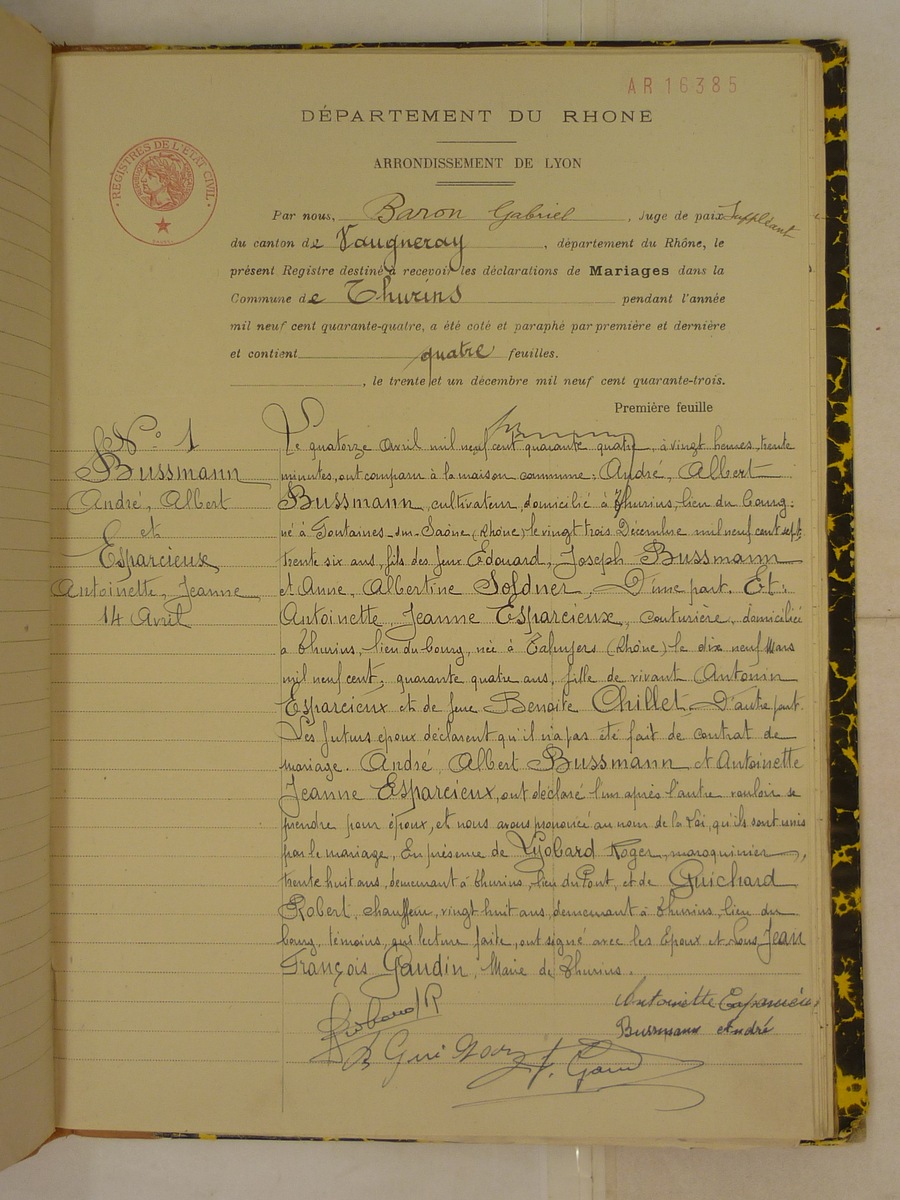 AR 16385
DÉPARTEMENT DU RHONE
ARRONDISSEMENT DE LYON
REGISTRES DE L'ÉTAT CIVIL
Par nous, Baron Gabriel, Juge de paix Suppléant
du canton de Vaugneray, département du Rhône, le
présent Registre destiné à recevoir les déclarations de Mariages dans la
Commune de Thurins pendant l'année
mil neuf cent quarante-quatre, a été coté et paraphé par première et dernière
et contient quatre feuilles.
, le trente et un décembre mil neuf cent quarante-trois.
Première feuille
N° 1
Bussmann
André, Albert
et
Esparcieux
Antoinette, Jeanne
14 Avril
Le quatorze Avril mil neuf cent quarante quatre, à vingt heures, trente
minutes, ont comparu à la maison commune: André, Albert
Bussmann, cultivateur, domicilié à Thurins, lieu du bourg:
né à Fontaines-sur-Saône (Rhône) le vingt trois Décembre mil neuf cent sept,
trente six ans, fils des feux Edouard, Joseph Bussmann
et Anne, Albertine Soldner, D'une part. Et:
Antoinette, Jeanne Esparcieux, couturière, domiciliée
à Thurins, lieu du bourg, née à Taluyers (Rhône) le dix neuf Mars
mil neuf cent, quarante quatre ans, fille de vivant Antonin
Esparcieux et de feue Benoite Chillet. D'autre part.
Les futurs époux déclarent qu'il n'a pas été fait de contrat de
mariage. André, Albert Bussmann, et Antoinette
Jeanne Esparcieux, ont déclaré l'un après l'autre vouloir se
prendre pour époux, et nous avons prononcé au nom de la Loi, qu'ils sont unis
par le mariage, En présence de Lyobard Roger, maroquinier,
trente huit ans, demeurant à Thurins, lieu du Pont, et de Guichard
Robert, chauffeur, vingt huit ans, demeurant à Thurins, lieu du
bourg, témoins, qui lecture faite, ont signé avec les Epoux et Nous Jean
François Gaudin, Maire de Thurins.
Antoinette Esparcieux
Bussmann André